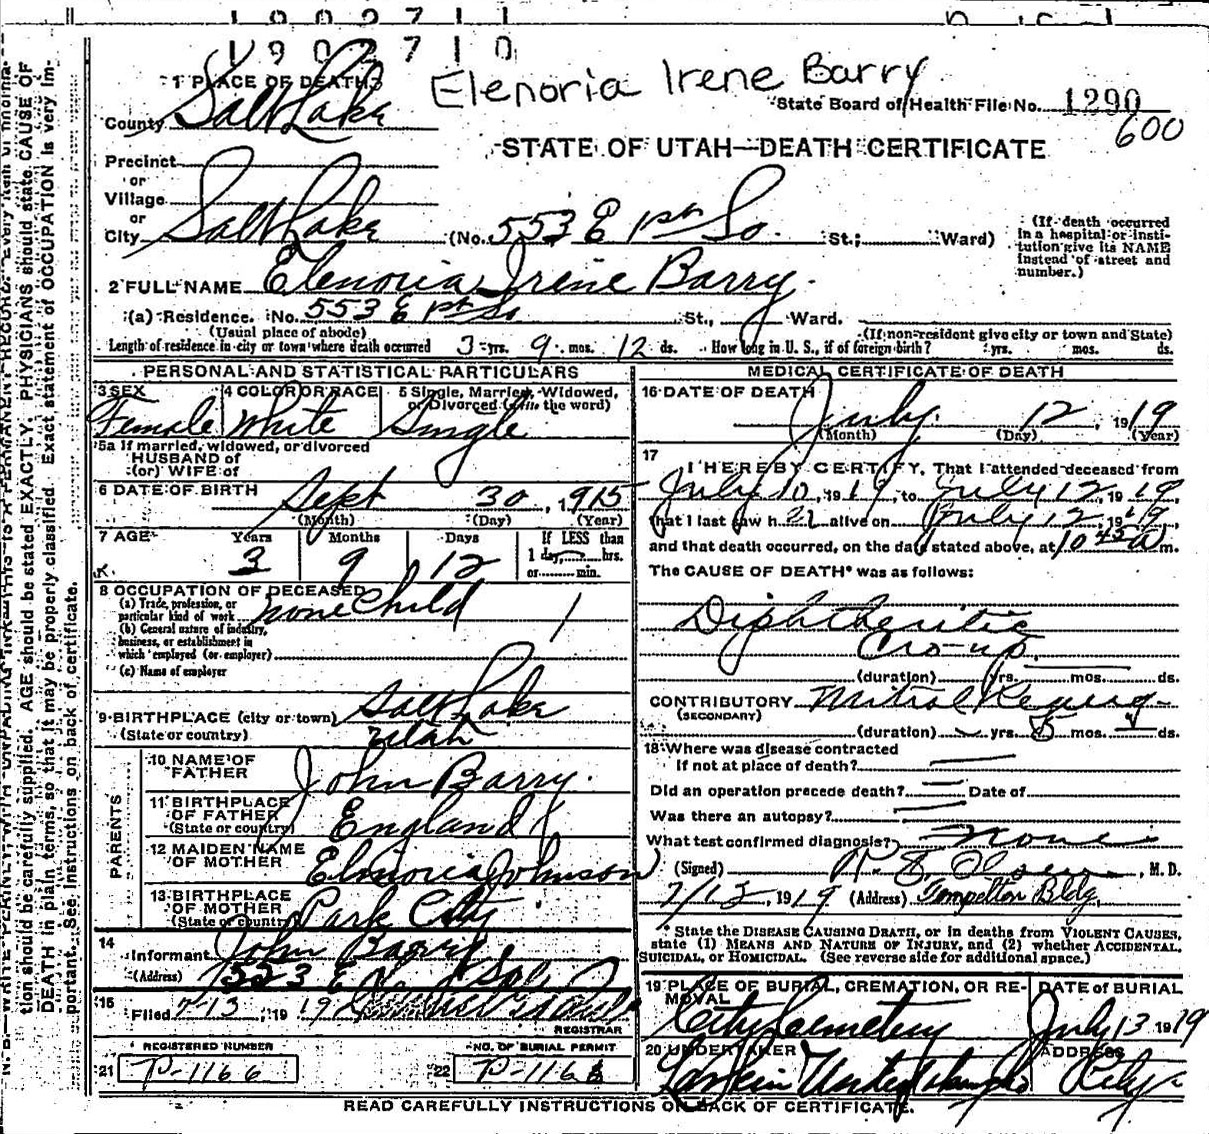 1902710
Elenoria Irene Barry
1 PLACE OF DEATH
State Board of Health File No. 1290
County Salt Lake
600
STATE OF UTAH—DEATH CERTIFICATE
Precinct
or
Village
or
City Salt Lake (No. 553 E 1st So. St.; Ward)
(If death occurred in a hospital or institution give its NAME instead of street and number.)
2 FULL NAME Elenoria Irene Barry.
(a) Residence. No. 553 E 1st So St., Ward.
(Usual place of abode) (If non-resident give city or town and State)
Length of residence in city or town where death occurred 3 yrs. 9 mos. 12 ds. How long in U. S., if of foreign birth? yrs. mos. ds.
PERSONAL AND STATISTICAL PARTICULARS
3 SEX 4 COLOR OR RACE 5 Single, Married, Widowed, or Divorced (write the word)
Female White Single
5a If married, widowed, or divorced
HUSBAND of
(or) WIFE of
6 DATE OF BIRTH Sept 30, 1915
(Month) (Day) (Year)
7 AGE Years Months Days If LESS than
1 day, hrs.
or min.
3 9 12
8 OCCUPATION OF DECEASED
(a) Trade, profession, or particular kind of work none Child
(b) General nature of industry, business, or establishment in which employed (or employer)
(c) Name of employer
9 BIRTHPLACE (city or town) Salt Lake
(State or country) Utah
PARENTS
10 NAME OF FATHER John Barry.
11 BIRTHPLACE OF FATHER (State or country) England
12 MAIDEN NAME OF MOTHER Elenoria Johnson
13 BIRTHPLACE OF MOTHER (State or country) Park City
14 Informant John Barry
(Address)
15 Filed 7-13, 19 19
REGISTRAR
REGISTERED NUMBER NO. OF BURIAL PERMIT
21 P-1166 22 P-1166
MEDICAL CERTIFICATE OF DEATH
16 DATE OF DEATH July 12, 1919
(Month) (Day) (Year)
17 I HEREBY CERTIFY, That I attended deceased from
July 10, 1919, to July 12, 1919,
that I last saw her alive on July 12, 1919,
and that death occurred, on the date stated above, at 10 45 a m.
The CAUSE OF DEATH* was as follows:
Diphtheritic
Croup.
(duration) yrs. mos. ds.
CONTRIBUTORY Mitral Regurg-
(SECONDARY)
(duration) yrs. 8 mos. ds.
18 Where was disease contracted
If not at place of death?
Did an operation precede death? Date of
Was there an autopsy?
What test confirmed diagnosis? none
(Signed) Olsen, M. D.
7/12, 1919 (Address) Tempelton Bldg.
* State the DISEASE CAUSING DEATH, or in deaths from VIOLENT CAUSES, state (1) MEANS AND NATURE OF INJURY, and (2) whether ACCIDENTAL, SUICIDAL, or HOMICIDAL. (See reverse side for additional space.)
19 PLACE OF BURIAL, CREMATION, OR REMOVAL DATE OF BURIAL
City Cemetery July 13 1919
20 UNDERTAKER ADDRESS
Larkin City
READ CAREFULLY INSTRUCTIONS ON BACK OF CERTIFICATE.
tion should be carefully supplied. AGE should be stated EXACTLY. PHYSICIANS should state CAUSE OF
DEATH in plain terms, so that it may be properly classified. Exact statement of OCCUPATION is very im-
portant. See instructions on back of certificate.